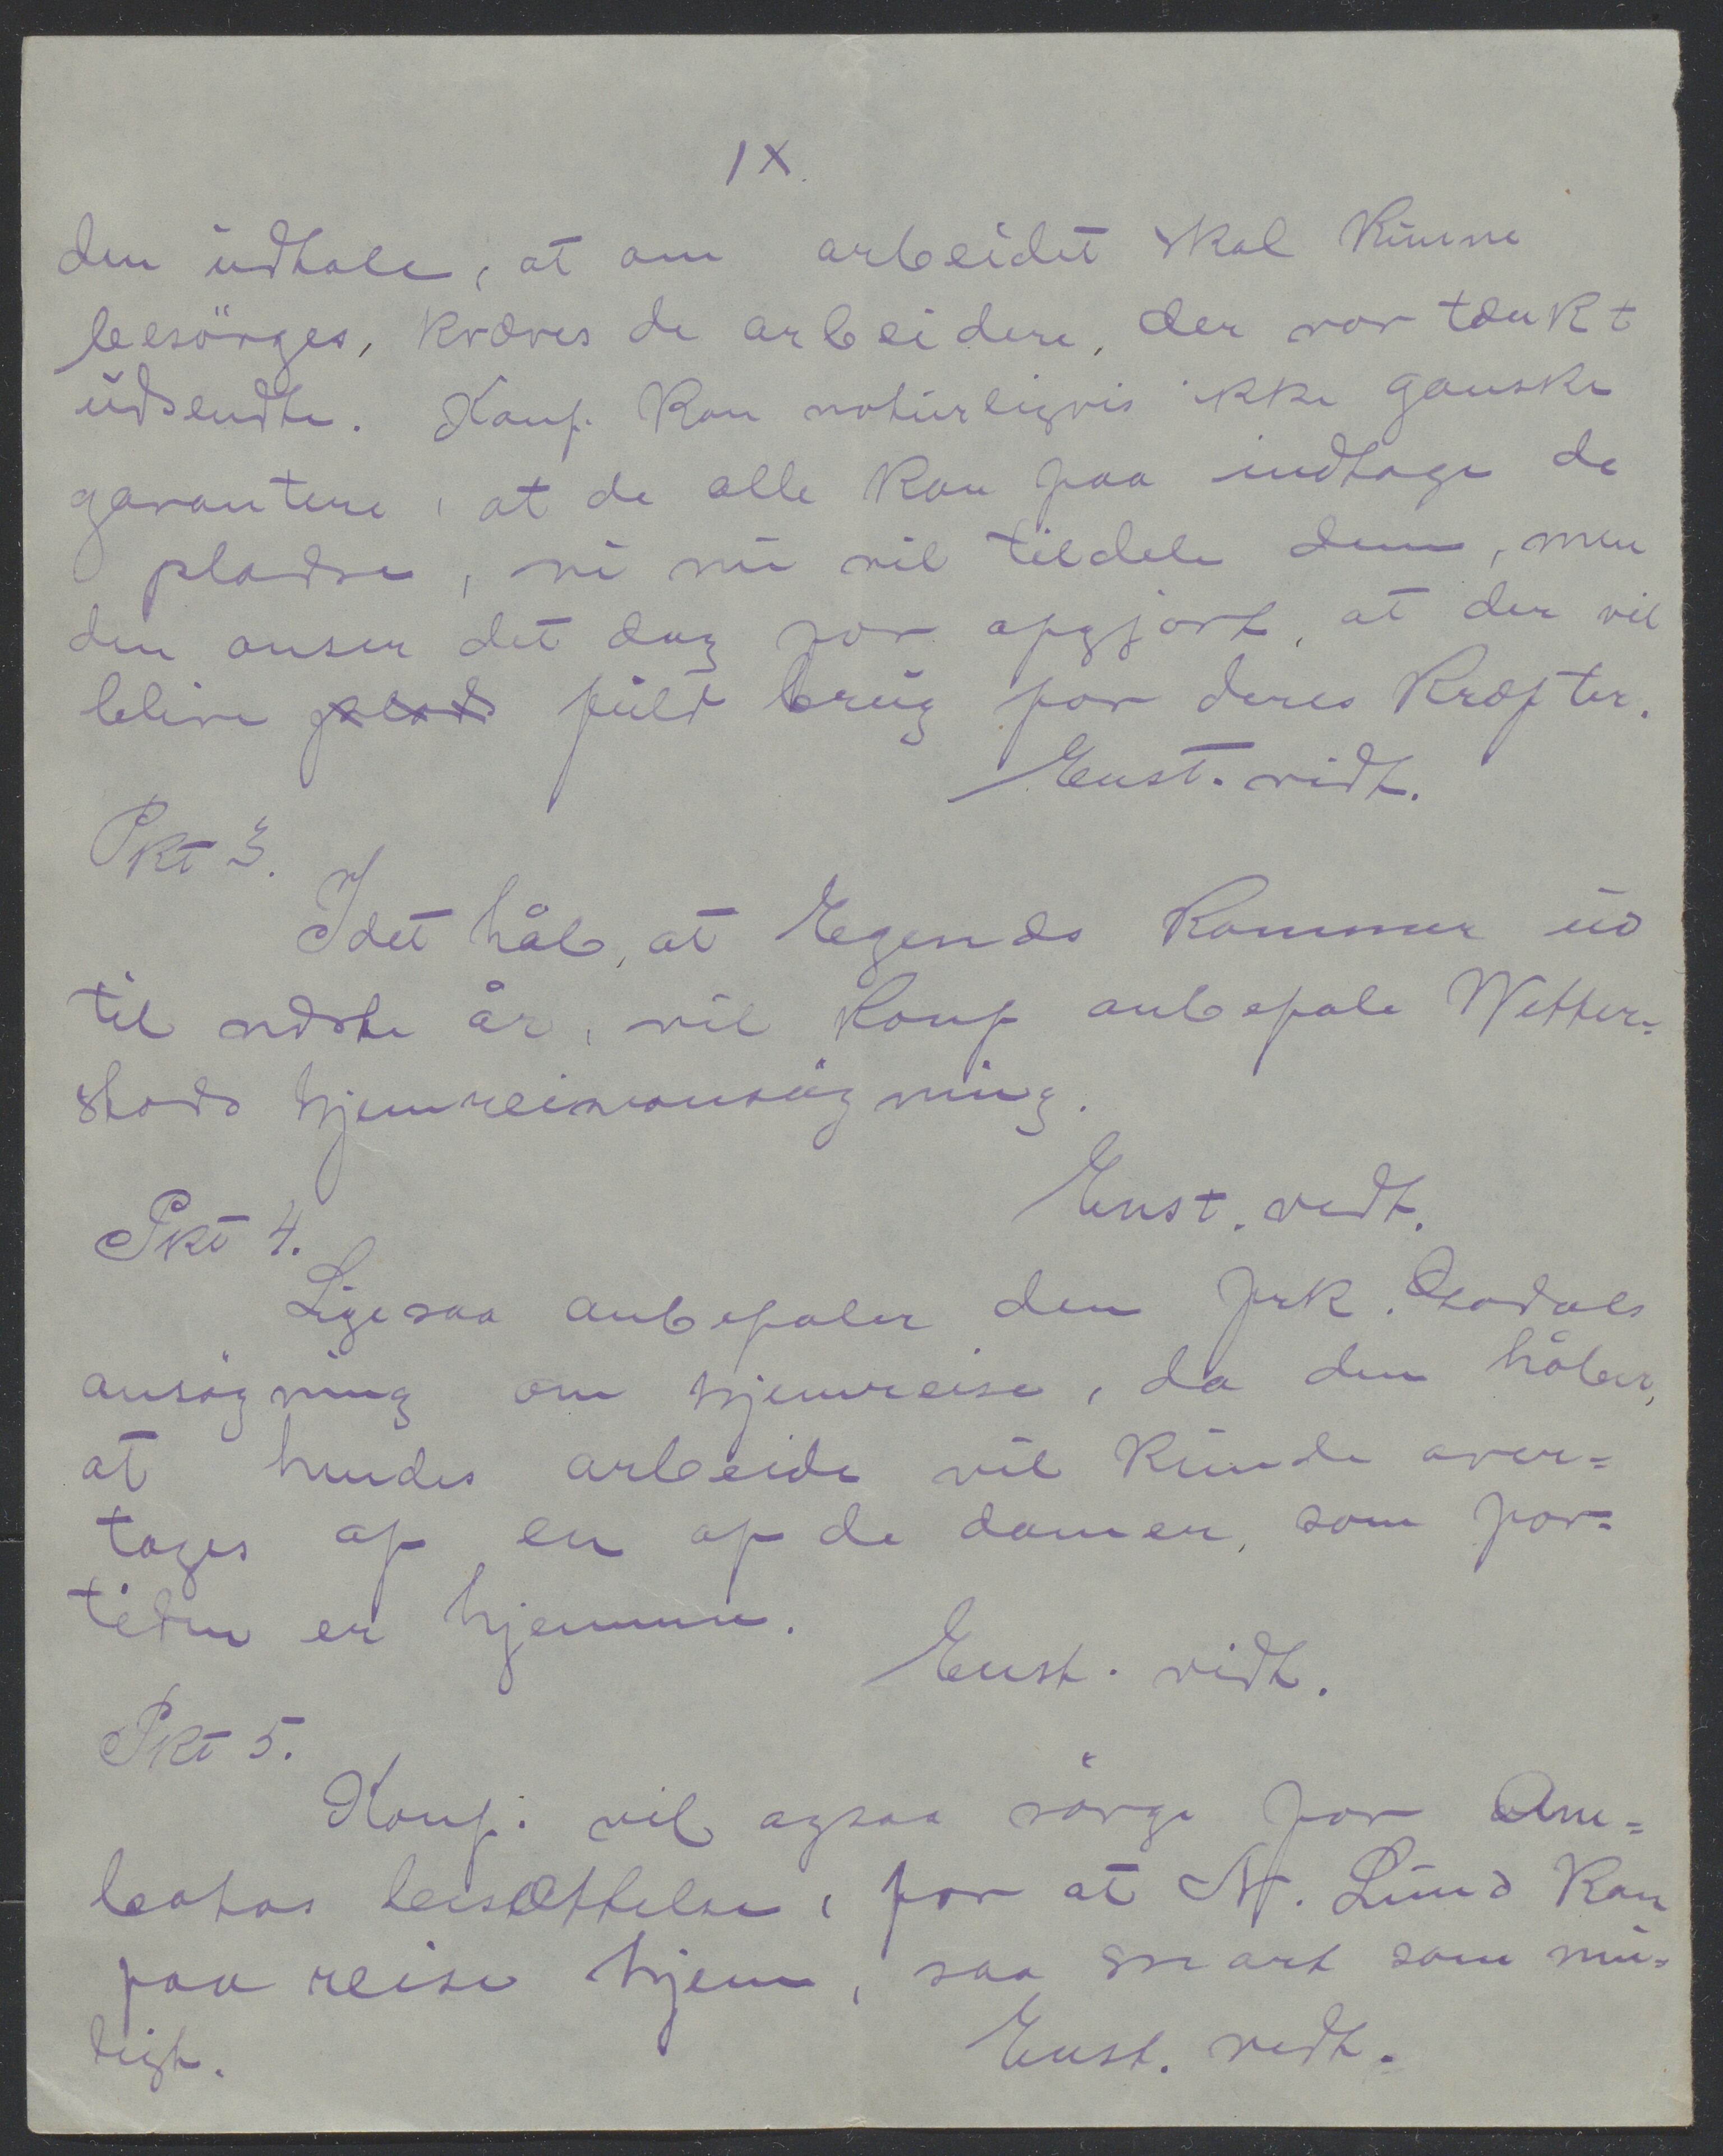 IX.
den udtale, at om arbeidet skal kunne
besörges, kræves de arbeidere, der var tænkt
udsendte. Konf. kan naturligvis ikke ganske
garantere, at de alle kan faa indtage de
pladse, vi nu vil tildele dem, men
den anser det dog for afgjort, at der vil
blive plads fuld brug for deres kræfter.
Enst. vedt.
Pkt 3.
I det håb, at Egenæs kommer ud
til næste år, vil konf anbefale Wetter=
stads hjemreiseansögning.
Enst. vedt.
Pkt 4.
Ligesaa anbefaler den frk.
ansögning om hjemreise, da den håber,
at hendes arbeide vil kunde over=
tages af en af de damer, som for=
tiden er hjemme.
Enst. vedt.
Pkt 5.
Konf. vil ogsaa sörge for Am=
beatos besættelse, for at N. Lund kan
faa reise hjem, saa snart som mu=
ligt.
Enst. vedt.